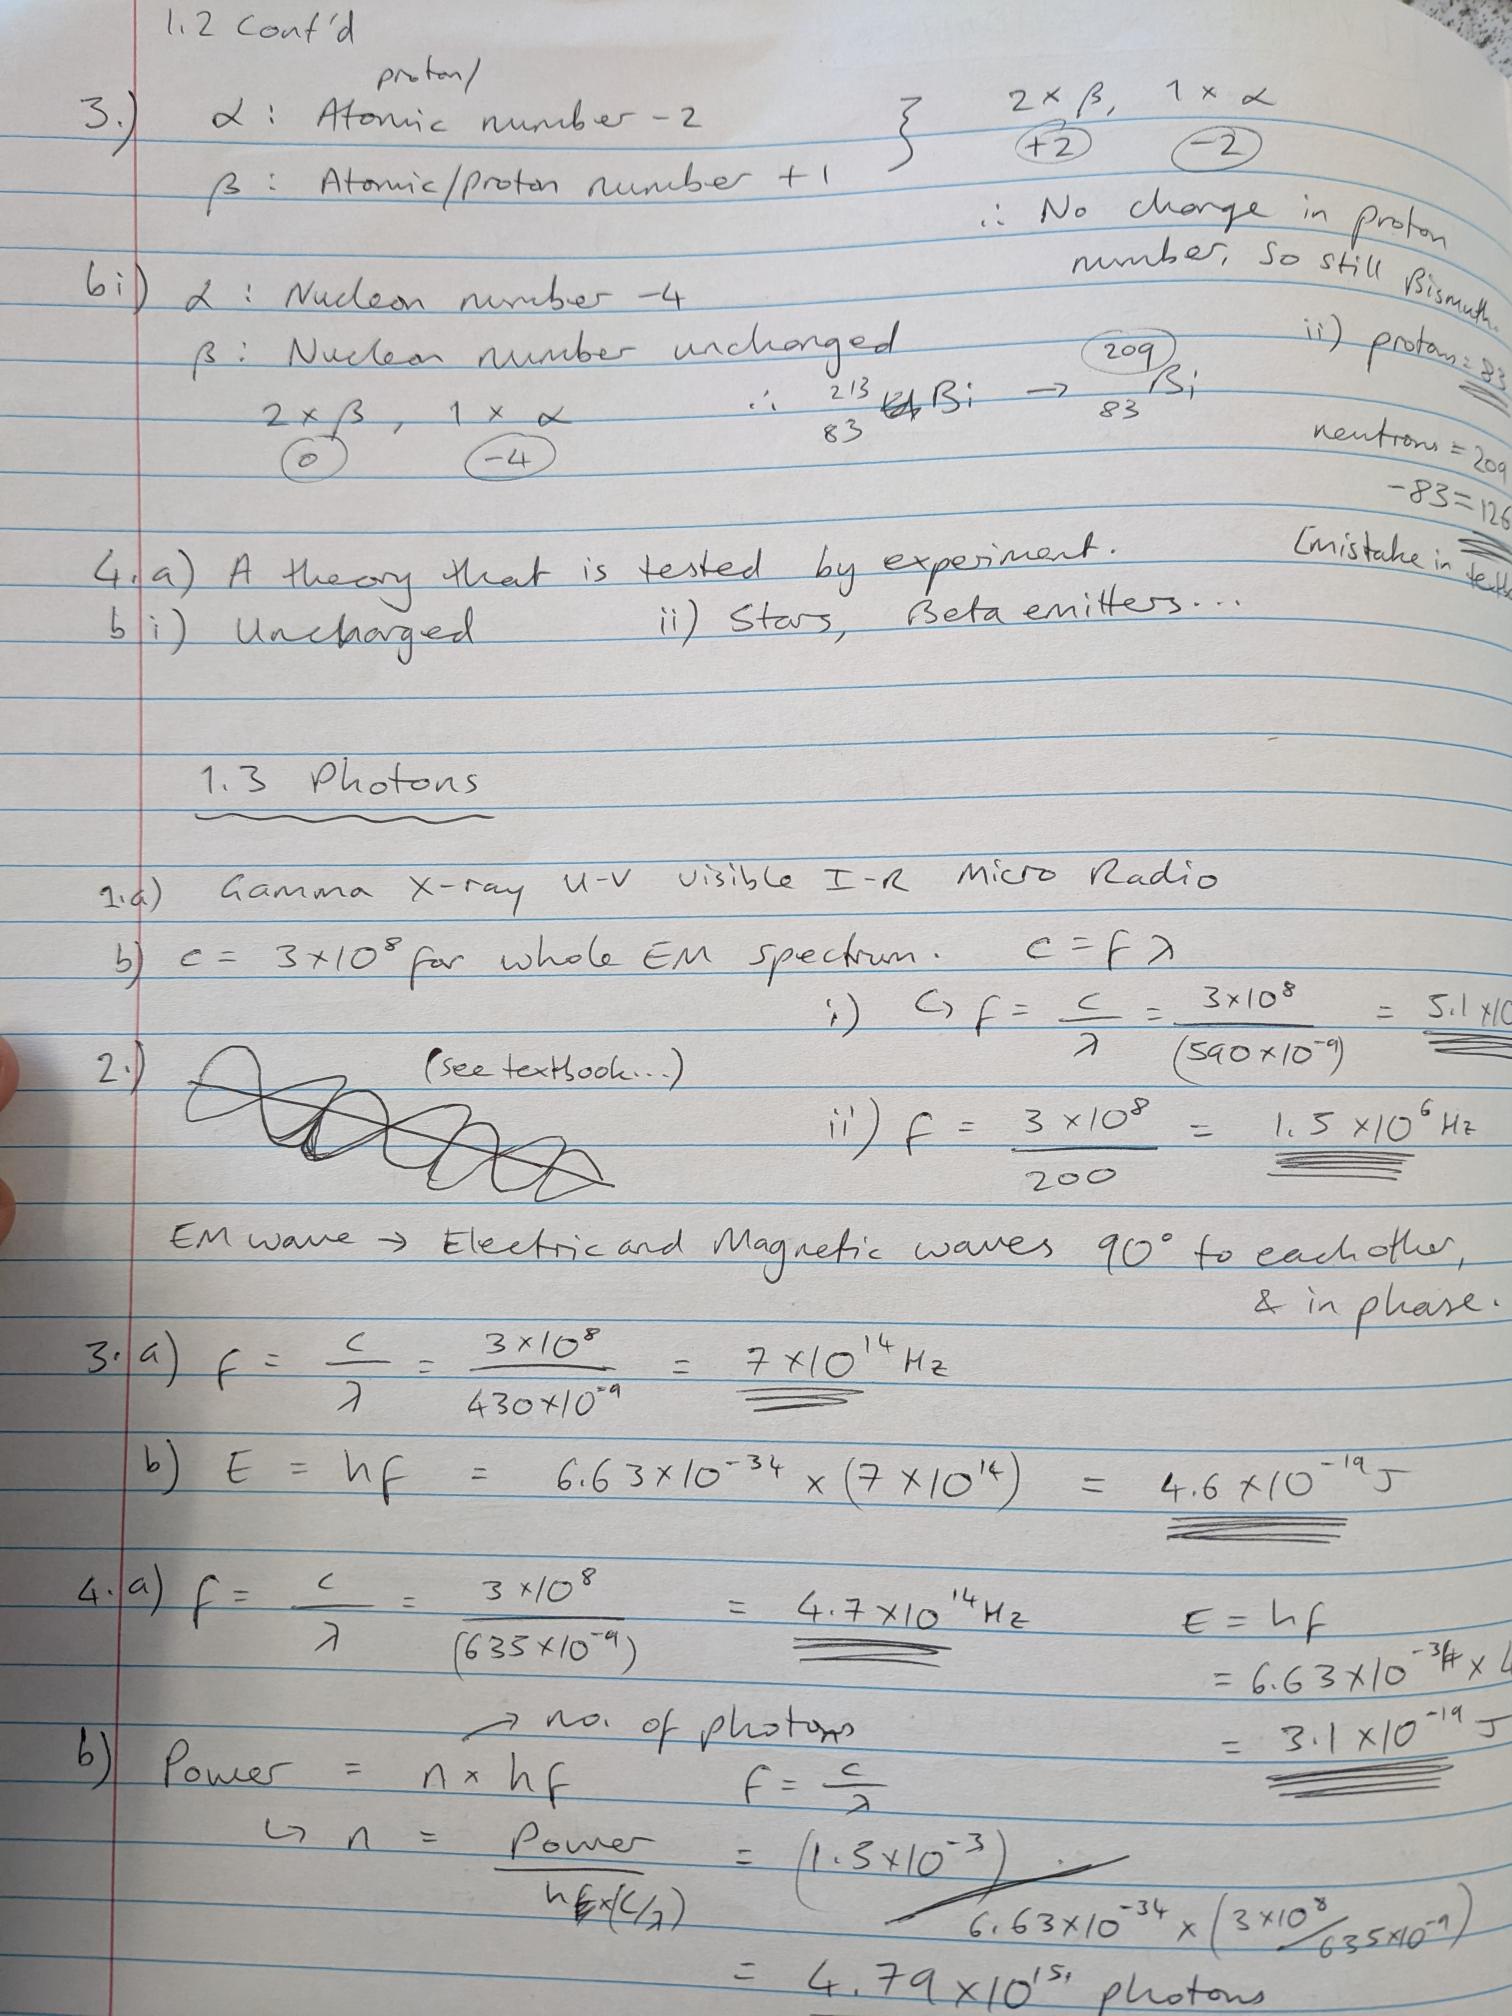 1.2 Cont'd
proton/
3.) α : Atomic number -2 } 2 × β, 1 × α
+2 -2
β : Atomic/proton number +1
∴ No change in proton
number, so still Bismuth.
bi) α : Nucleon number -4
β : Nucleon number unchanged
ii) protons = 83
2 × β, 1 × α ∴ 213 83 Bi → 209 83 Bi
0 -4
neutrons = 209
-83 = 126
(mistake in
4.a) A theory that is tested by experiment.
b i) Uncharged ii) Stars, Beta emitters...
1.3 Photons
1.a) Gamma X-ray U-V Visible I-R Micro Radio
b) c = 3×10⁸ for whole EM spectrum. c = fλ
i) ↳ f = c/λ = 3×10⁸/(590×10⁻⁹) = 5.1 ×10
2.) (see textbook...)
ii) f = 3×10⁸/200 = 1.5 ×10⁶ Hz
EM wave → Electric and Magnetic waves 90° to eachother,
& in phase.
3.a) f = c/λ = 3×10⁸/430×10⁻⁹ = 7×10¹⁴ Hz
b) E = hf = 6.63×10⁻³⁴ × (7×10¹⁴) = 4.6×10⁻¹⁹ J
4.a) f = c/λ = 3×10⁸/(635×10⁻⁹) = 4.7×10¹⁴ Hz E = hf
= 6.63×10⁻³⁴ × 4
= 3.1×10⁻¹⁹ J
→ no. of photons
b) Power = n × hf f = c/λ
↳ n = Power/h×(c/λ) = (1.5×10⁻³)/6.63×10⁻³⁴ × (3×10⁸/635×10⁻⁹)
= 4.79×10¹⁵ photons